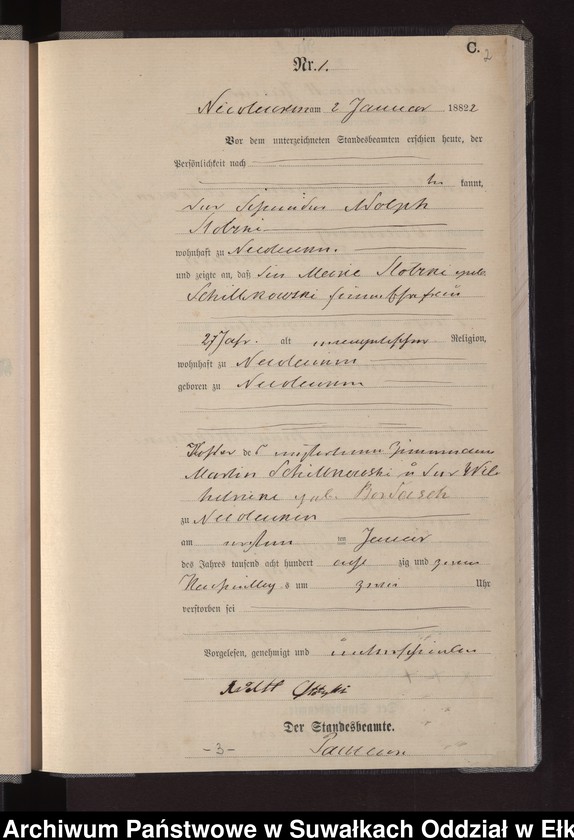 C.
2
Nr. 1.
am 2 Januar 1882
Vor dem unterzeichneten Standesbeamten erschien heute, der
Persönlichkeit nach
be kannt,
der Schneider Adolph
wohnhaft zu
und zeigte an, daß die Marie
Schillkowski seine Ehefrau
27 Jahr alt evangelischer Religion,
wohnhaft zu
geboren zu
Tochter des verstorbenen Zimmermann
Martin Schillkowski u der Wil
helmine geb.
zu
am ersten ten Januar
des Jahres tausend acht hundert acht zig und zwei
Nachmittag s um zwei Uhr
verstorben sei
Vorgelesen, genehmigt und unterschrieben
Der Standesbeamte.
-3-
Archiwum Państwowe w Suwałkach Oddział w Ełk